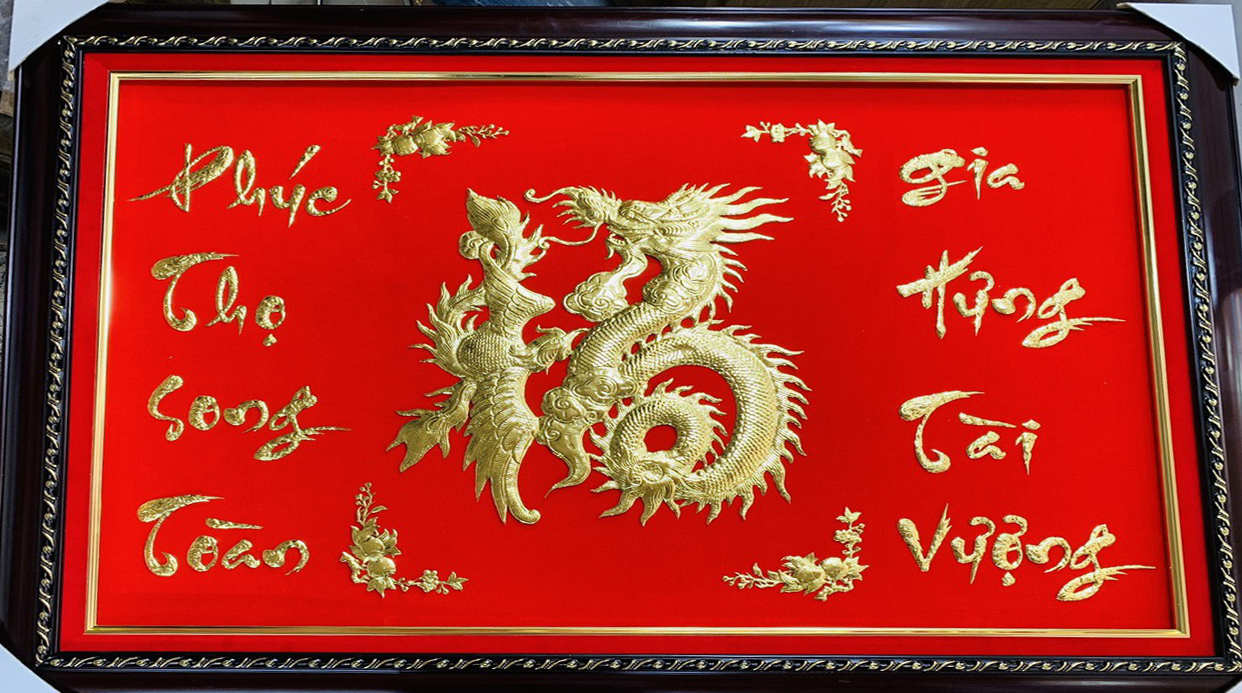 Phúc
Thọ
Song
Toàn
Gia
Hưng
Tài
Vượng